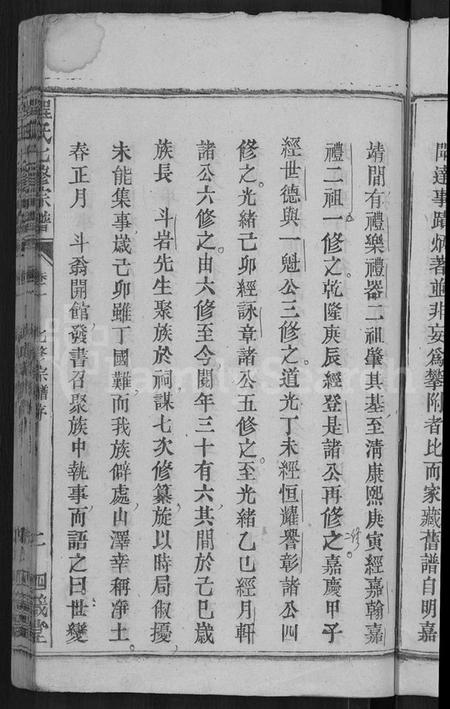 聞達事蹟炳著並非妄為攀附者比而家藏舊譜自明嘉
靖間有禮樂禮器二祖肇其基至清康熙庚寅經嘉翰嘉
禮二祖一修之乾隆庚辰經登是諸公再修之嘉慶甲子
經世德與一魁公三修之道光丁未經恒耀譽彰諸公四
修之光緒己卯經詠章諸公五修之至光緒乙巳經月軒
諸公六修之由六修至今閱年三十有六其間於己巳歲
族長 斗岩先生聚族於祠謀七次修纂旋以時局俶擾
未能集事歲己卯雖丁國難而我族僻處山澤幸稱淨土
春正月 斗翁開館發書召聚族中執事而語之曰世變
程氏七修宗譜 卷一 七修宗譜序 二 四箴堂
FamilySearch